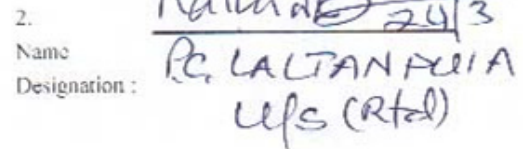 2. 24/3
Name P.C. LALTANPUIA
Designation : U/S (Rtd)